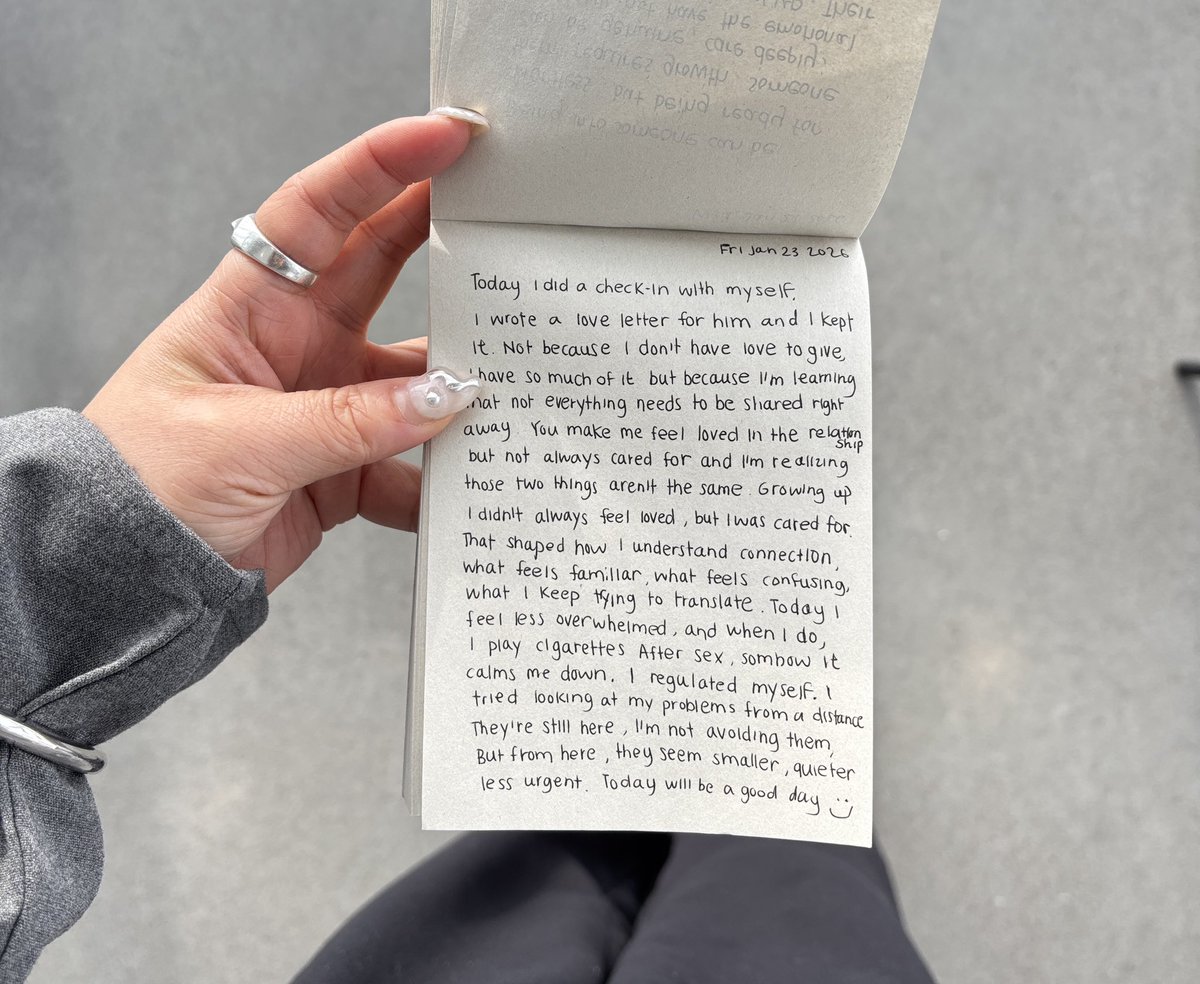 Their
have the emotional
genuine, care deeply,
requires growth, someone
but being ready for
into someone can be
Fri Jan 23 2026
Today I did a check-in with myself.
I wrote a love letter for him and I kept
it. Not because I don't have love to give,
I have so much of it but because I'm learning
that not everything needs to be shared right
away. You make me feel loved in the relationship
but not always cared for and I'm realizing
those two things aren't the same. Growing up
I didn't always feel loved, but I was cared for.
That shaped how I understand connection,
what feels familiar, what feels confusing,
what I keep trying to translate. Today I
feel less overwhelmed, and when I do,
I play cigarettes After sex, somhow it
calms me down. I regulated myself. I
tried looking at my problems from a distance
They're still here, I'm not avoiding them,
But from here, they seem smaller, quieter
less urgent. Today will be a good day